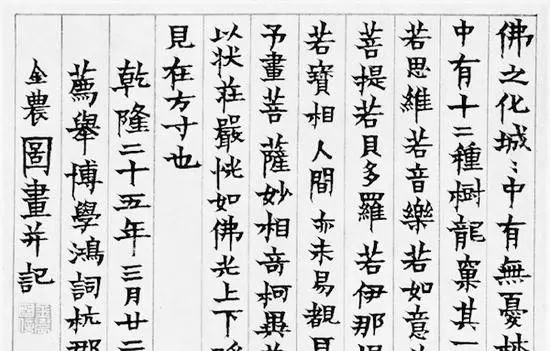 佛之化城〻中有無憂林
中有十二種樹龍窠其一
若思維若音樂若如意
菩提若貝多羅若伊那
若寶相人間亦未易覩見
予畫菩薩妙相奇柯異
以狀莊嚴恍如佛光上下
見在方寸也
乾隆二十五年三月廿二
薦舉博學鴻詞杭郡
金農圖畫并記